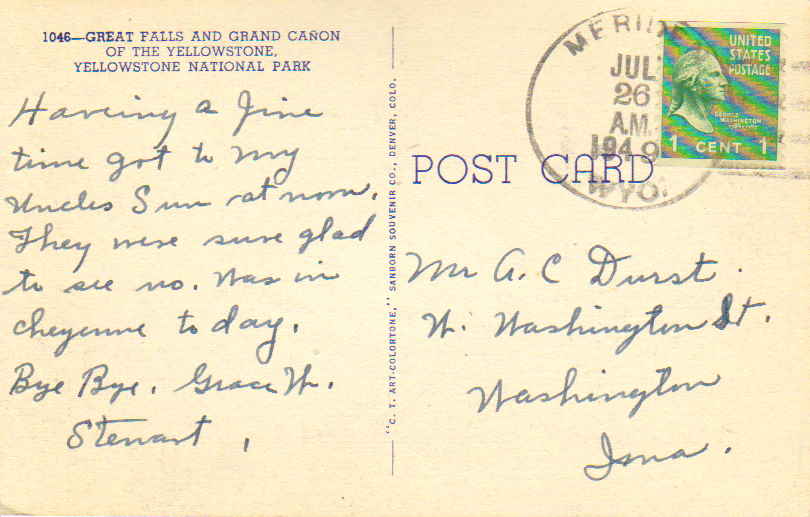 1046—GREAT FALLS AND GRAND CAÑON
OF THE YELLOWSTONE,
YELLOWSTONE NATIONAL PARK
Having a fine
time got to my
Uncles Sun at noon.
They were sure glad
to see us. Was in
cheyenne to day.
Bye Bye. Grace W.
Stewart.
"C. T. ART-COLORTONE," SANBORN SOUVENIR CO., DENVER, COLO.
POST CARD
JUL
26
A.M.
1949
WYO.
UNITED
STATES
POSTAGE
GEORGE
WASHINGTON
1 CENT 1
Mr A. C Durst.
W. Washington St.
Washington
Iowa.